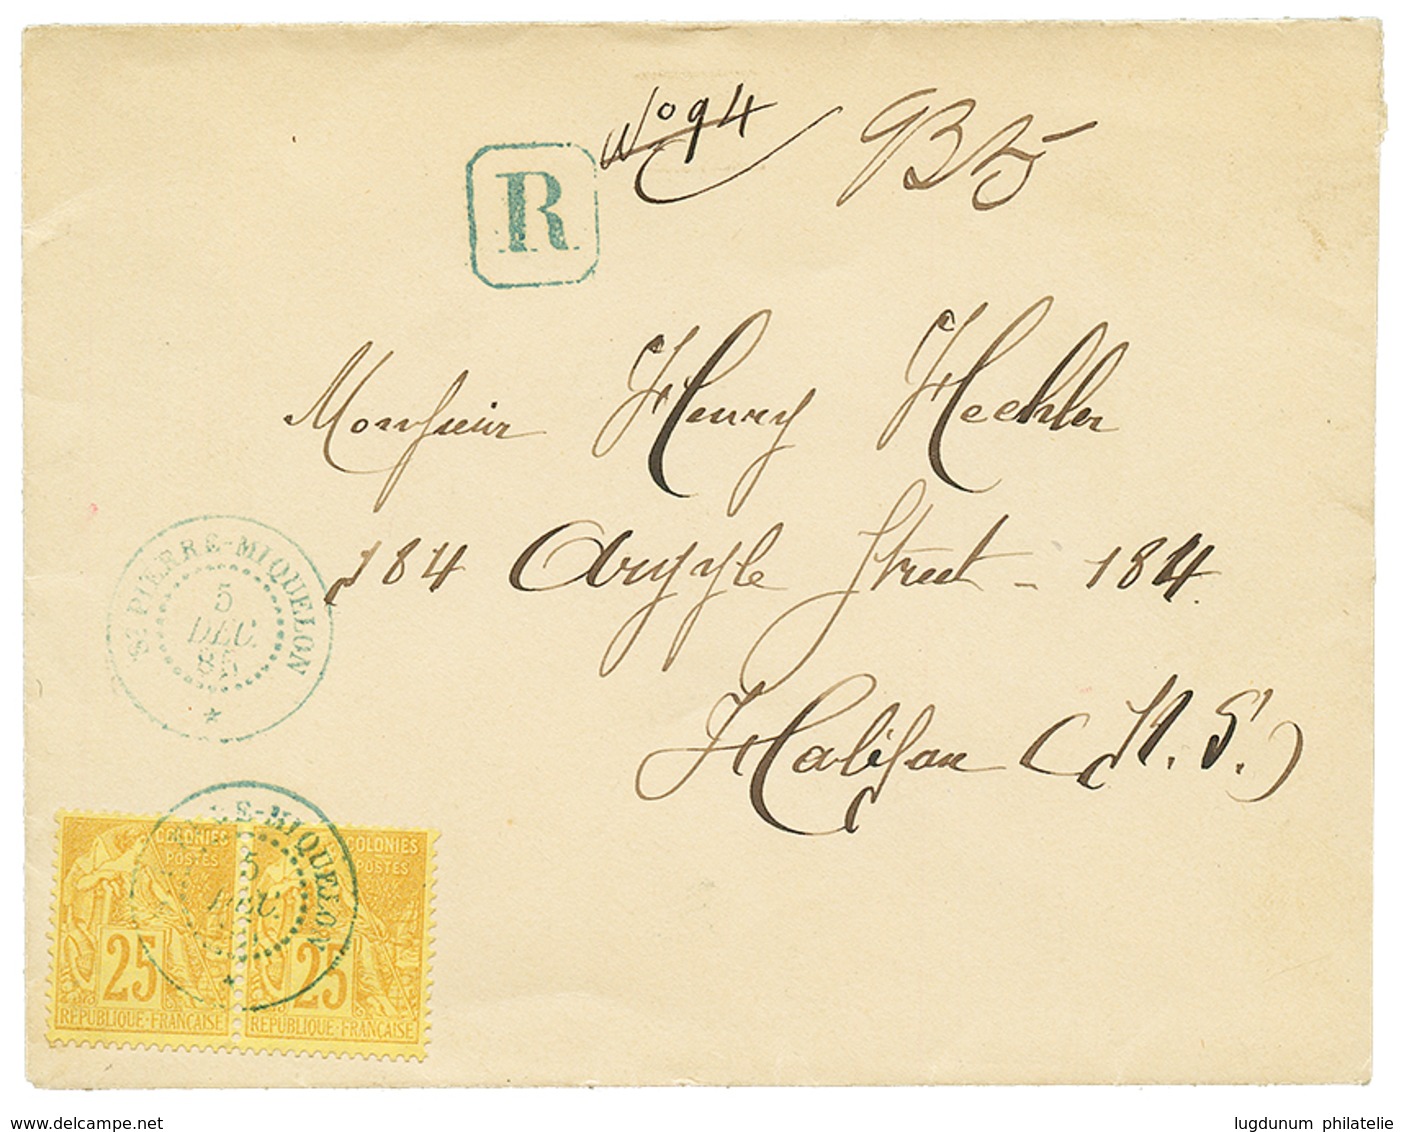 No 94
R
Monsieur Henry Hechler
184 Argyle Street - 184.
Halifax (N. S.)
ST PIERRE-MIQUELON
5
DEC.
85
MIQUELON
5
DEC.
COLONIES
POSTES
25
RÉPUBLIQUE-FRANÇAISE
COLONIES
POSTES
25
RÉPUBLIQUE-FRANÇAISE
www.delcampe.net
lugdunum philatelie